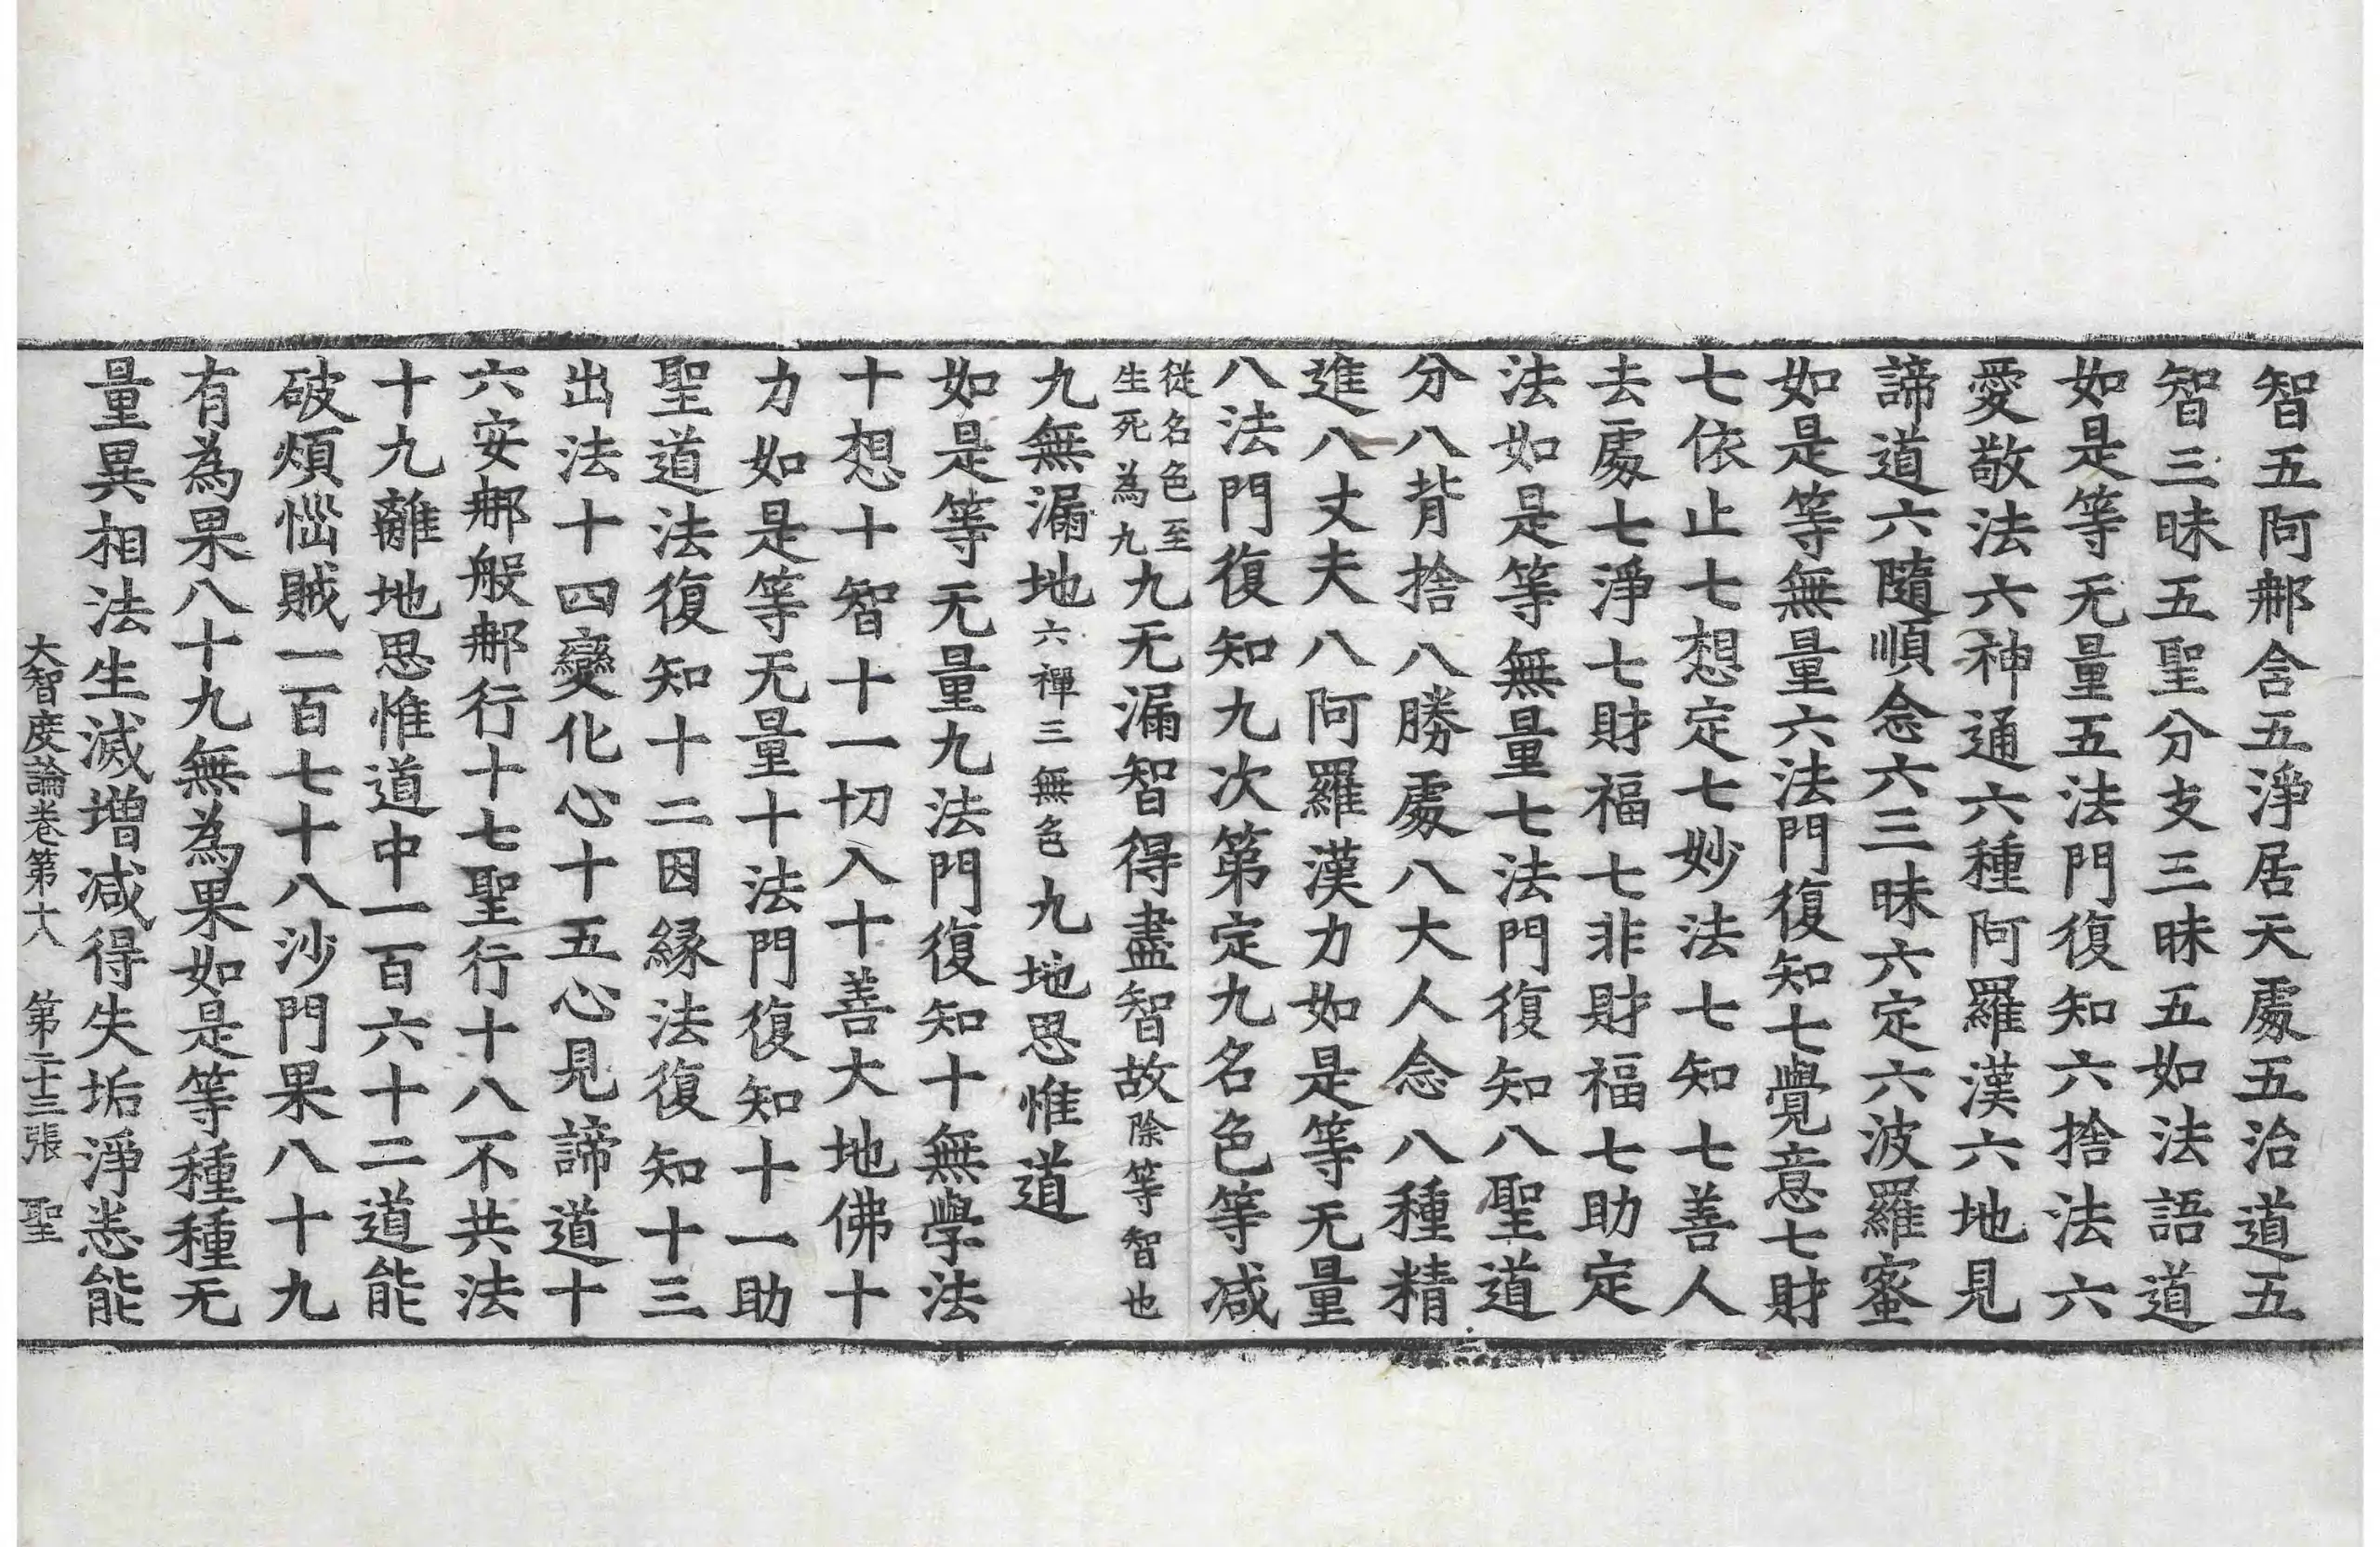 智五阿那含五淨居天處五治道五
智三昧五聖分支三昧五如法語道
如是等无量五法門復知六捨法六
愛敬法六神通六種阿羅漢六地見
諦道六隨順念六三昧六定六波羅蜜
如是等無量六法門復知七覺意七財
七依止七想定七妙法七知七善人
去處七淨七財福七非財福七助定
法如是等無量七法門復知八聖道
分八背捨八勝處八大人念八種精
進八丈夫八阿羅漢力如是等无量
八法門復知九次第定九名色等減
從名色至生死為九九无漏智得盡智故除等智也
九無漏地六禪三無色九地思惟道
如是等无量九法門復知十無學法
十想十智十一切入十善大地佛十
力如是等无量十法門復知十一助
聖道法復知十二因緣法復知十三
出法十四變化心十五心見諦道十
六安那般那行十七聖行十八不共法
十九離地思惟道中一百六十二道能
破煩惱賊一百七十八沙門果八十九
有為果八十九無為果如是等種種无
量異相法生滅增減得失垢淨悉能
大智度論卷第十八 第二十三張 聖